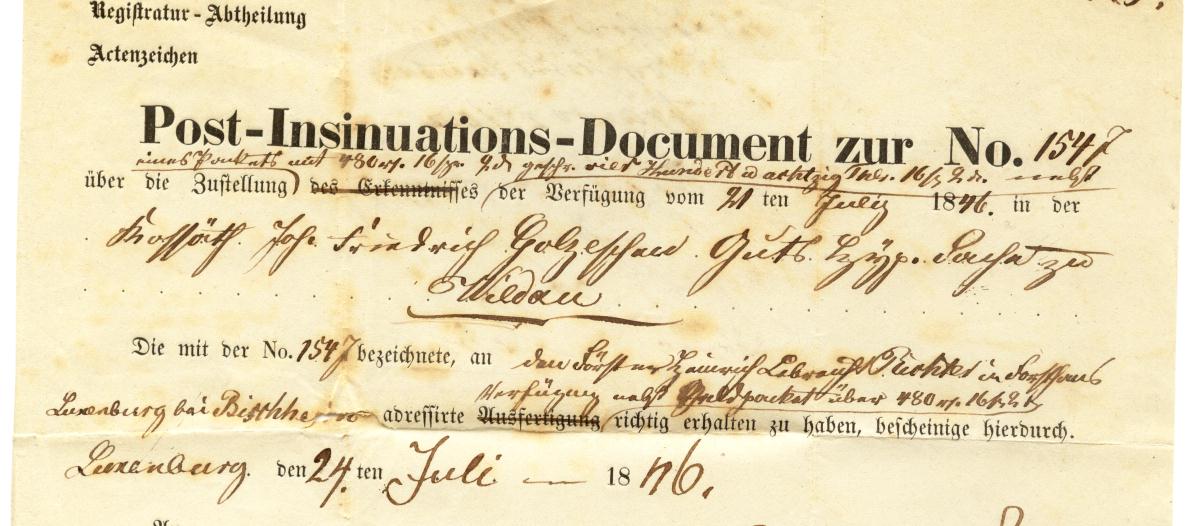 Registratur-Abtheilung
Actenzeichen
Post-Insinuations-Document zur No. 1547
eines Packets mit 480 rt. 16 sgr. 2 d. geschr. vier Hundert u achtzig Thlr. 16 sg 2 d. nebst
über die Zustellung des Erkenntnisses der Verfügung vom 21 ten July 1846. in der
Kossäth Joh. Friedrich Golzeschen Guts Hyp. Sache zu
Wildau
Die mit der No. 1547 bezeichnete, an den Förster Heinrich Lebrecht in Forsthaus
Verfügung nebst Geldpacket über 480 rt. 16 sg 2 d
Luxenburg bei adressirte Ausfertigung richtig erhalten zu haben, bescheinige hierdurch.
Luxenburg. den 24. ten Juli 1846.